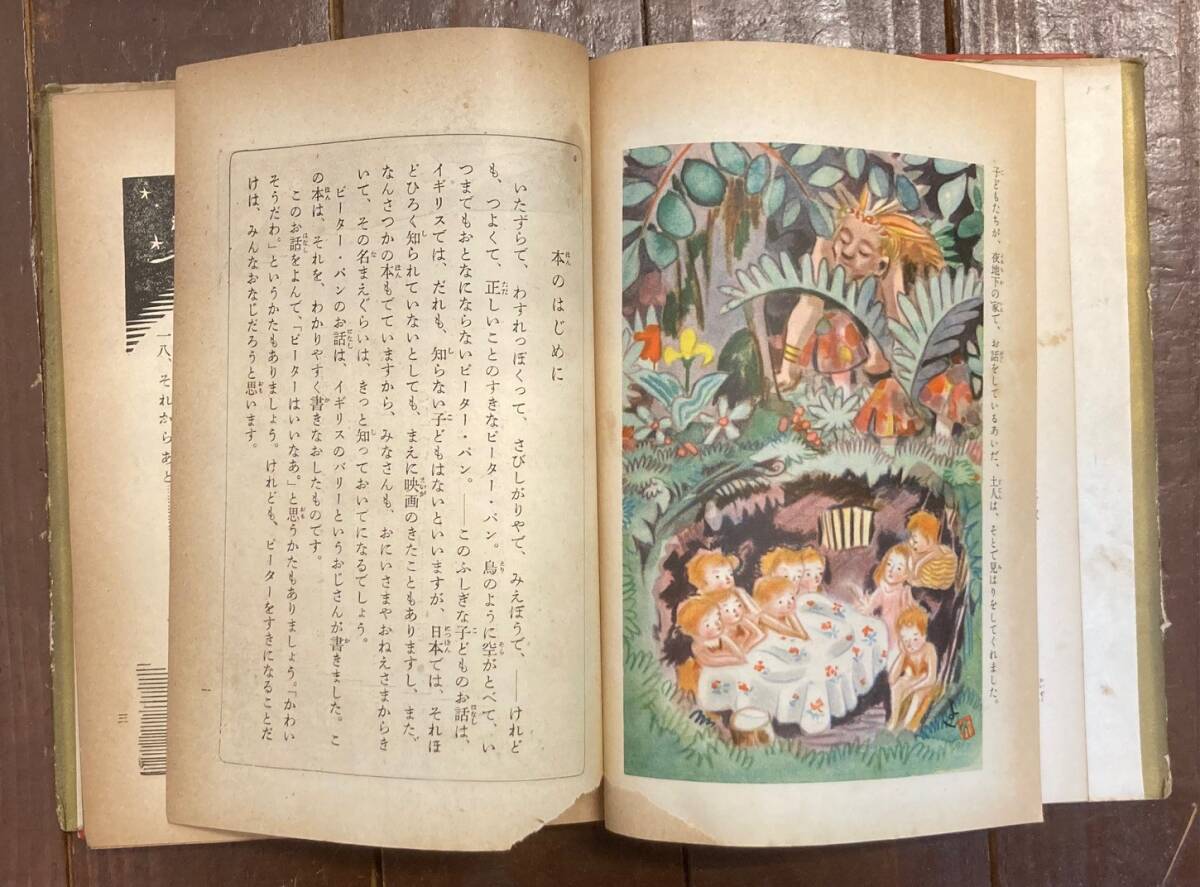 子どもたちが、夜地下の家で、お話をしているあいだ、土人は、そとで見はりをしてくれました。
本のはじめに
いたずらで、わすれっぽくって、さびしがりやで、みえぼうで、――けれど
も、つよくて、正しいことのすきなピーター・パン。鳥のように空がとべて、い
つまでもおとなにならないピーター・パン。――このふしぎな子どものお話は、
イギリスでは、だれも、知らない子どもはないといいますが、日本では、それほ
どひろく知られていないとしても、まえに映画のきたこともありますし、また、
なんさつかの本もでていますから、みなさんも、おにいさまやおねえさまからき
いて、その名まえぐらいは、きっと知っておいてになるでしょう。
ピーター・パンのお話は、イギリスのバリーというおじさんが書きました。こ
の本は、それを、わかりやすく書きなおしたものです。
このお話をよんで、「ピーターはいいなあ。」と思うかたもありましょう。「かわい
そうだわ。」というかたもありましょう。けれども、ピーターをすきになることだ
けは、みんなおなじだろうと思います。
一
一八、それからあと
三